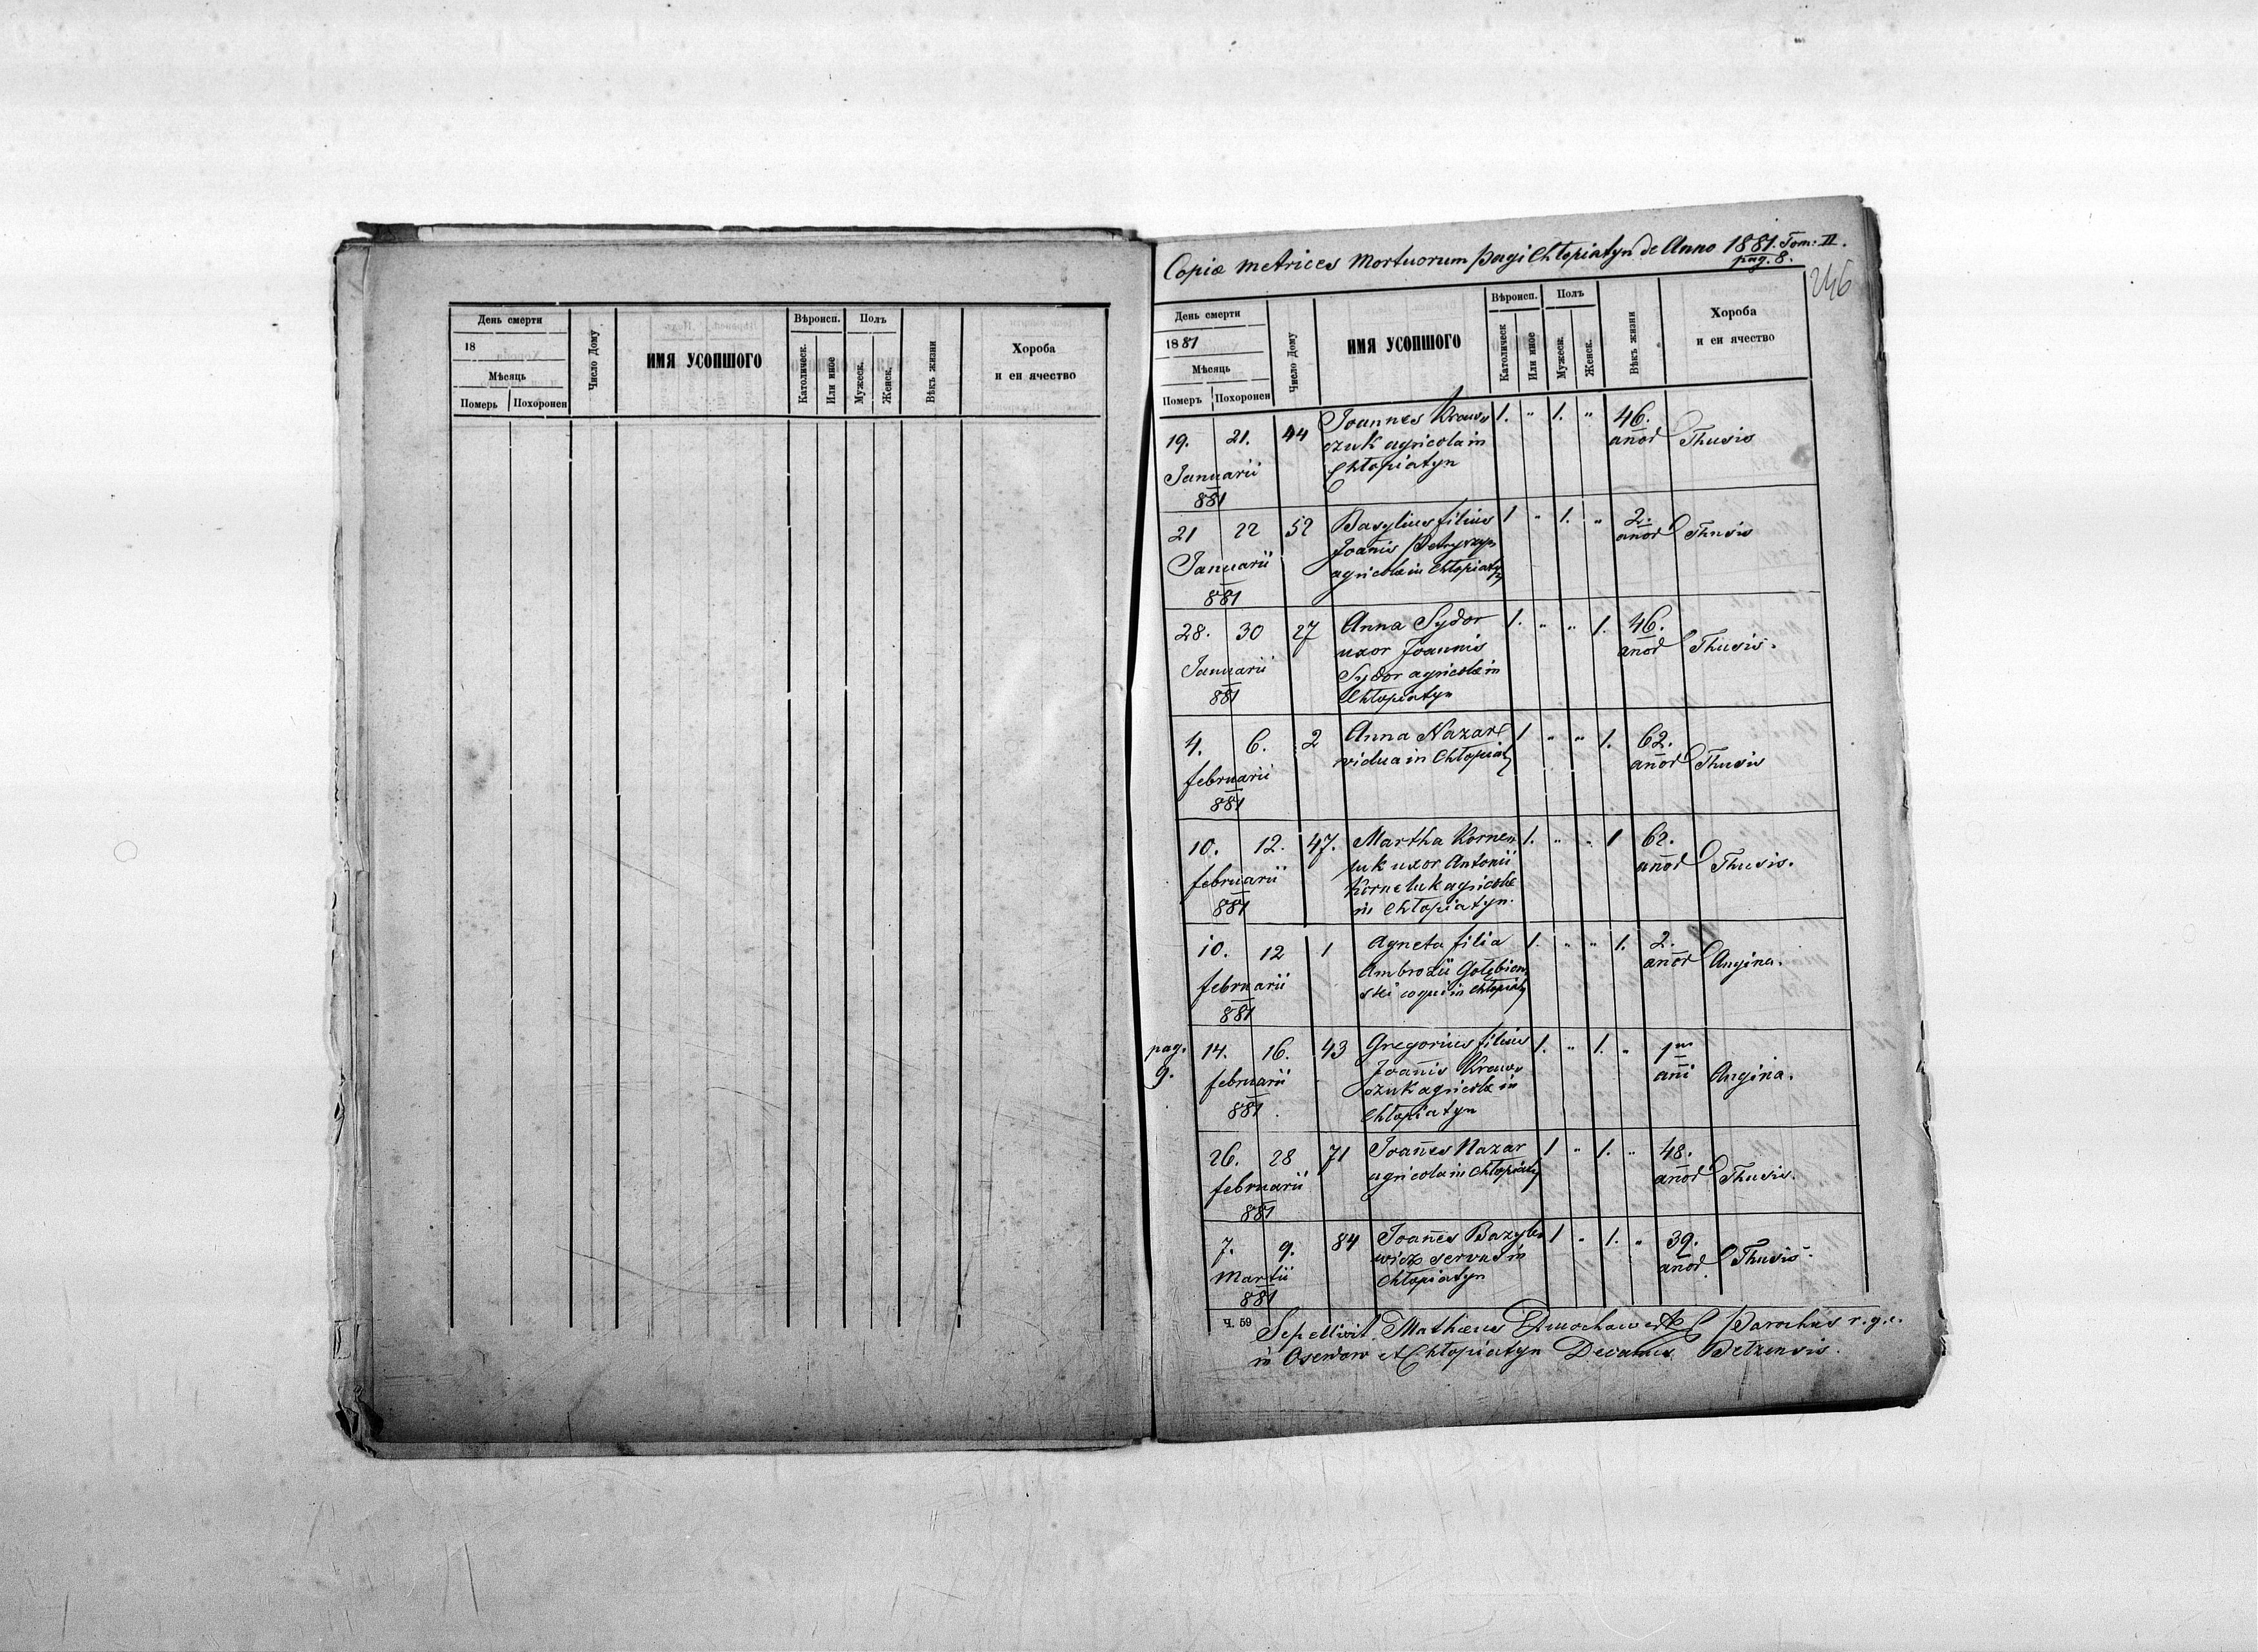 День смерти
18
Мѣсяць
Померъ
Похоронен
Число Дому
ИМЯ УСОПШОГО
Вѣроисп.
Католическ.
Или иное
Полъ
Мужеск.
Женск.
Вѣкъ жизни
Хороба
и еи ячество
Copiæ metrices Mortuorum pagi Chłopiatyn de Anno 1881. Tom: II.
pag. 8.
246
День смерти
1881
Мѣсяць
Померъ
Похоронен
Число Дому
ИМЯ УСОПШОГО
Вѣроисп.
Католическ
Или иное
Полъ
Мужеск.
Женск.
Вѣкъ жизни
Хороба
и еи ячество
19. 21. 44 Joannes Kraws 1. " 1. " 46.
czuk agricola in anor Thusis
Januarii Chłopiatyn
881
21 22 52 Basylius filius 1 " 1. " 2.
Joanīs anor Thusis
Januarii agricolæ in Chłopiatyn
881
28. 30 27 Anna Sydor 1. " " 1. 46.
uxor Joannis anor Thusis.
Januarii Sydor agricolæ in
881 Chłopiatyn
4. 6. 2 Anna Nazar 1 " " 1. 62.
vidua in Chłopiaty anor Thusis
februarii
881
10. 12. 47. Martha Korne 1. " " 1 62.
luk uxor Antonii anor Thusis.
februarii Korneluk agricolæ
881 in Chłopiatyn.
10. 12 1 Agneta filia 1. " " 1. 2.
Ambrozii Gołębiow anor Angina.
februarii ski coqui in Chłopiaty
881
pag. 9.
14. 16. 43 Gregorius filius 1. " 1. " 1ⁿⁱ
februarii Joanīs Kraws ani Angina.
czuk agricolæ in
881 Chłopiatyn
26. 28 71 Joañes Nazar 1 " 1. " 48.
februarii agricola in Chłopiaty anor Thusis.
881
7. 9. 84 Joañes Bazyle 1 " 1. " 39.
Martii wicz servus in anor Thusis.
881 Chłopiatyn
Ч. 59
Sepelivit Mathæus Parochus r. g. c.
in Oserdow et Chłopiatyn Decanus Bełzensis.